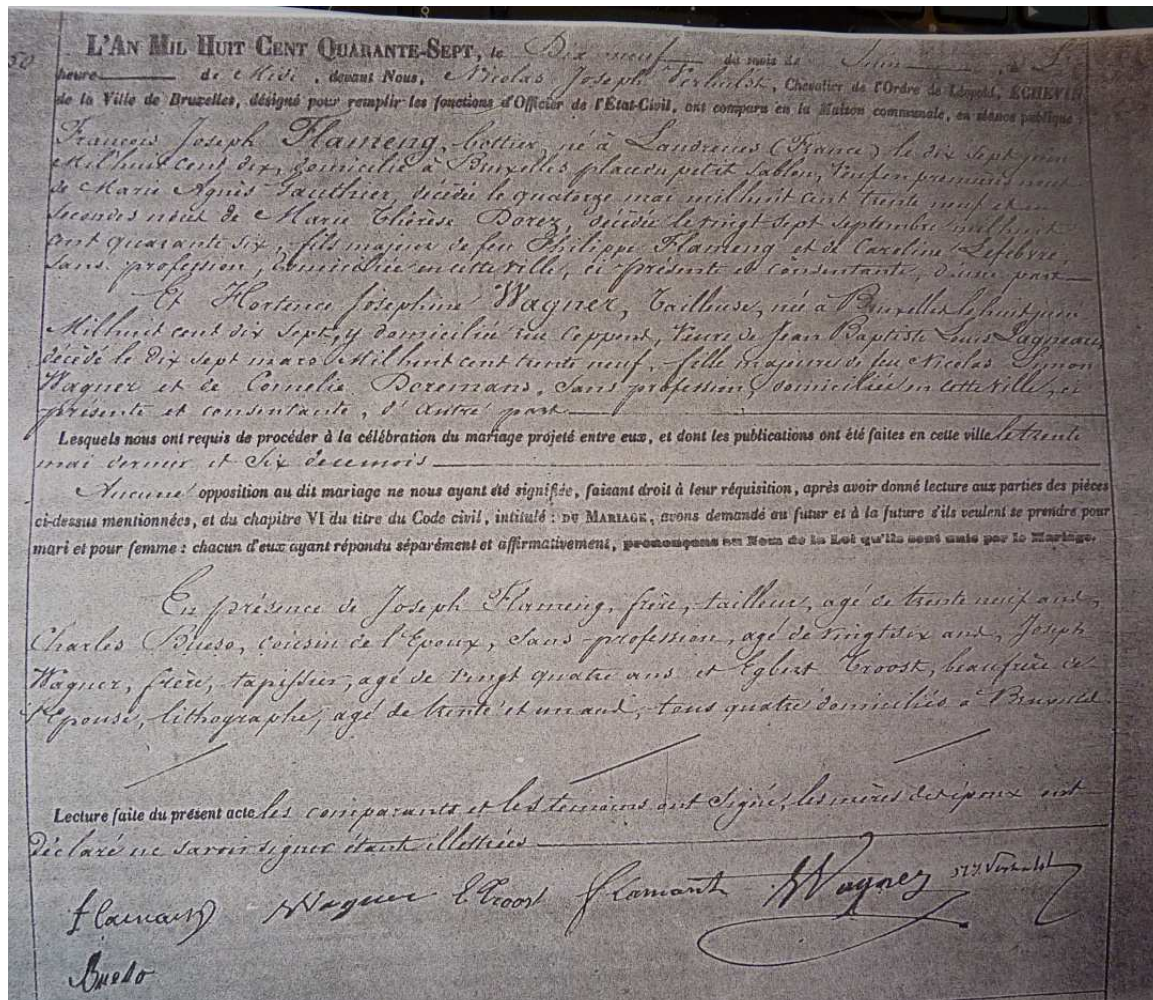 L'AN MIL HUIT CENT QUARANTE-SEPT, le Dix neuf du mois de Juin, à
heure de Midi, devant Nous, Nicolas Joseph Verhulst, Chevalier de l'Ordre de Léopold, ÉCHEVIN
de la Ville de Bruxelles, désigné pour remplir les fonctions d'Officier de l'État-Civil, ont comparu en la Maison communale, en séance publique:
François Joseph Flameng, bottier, né à Landrecies (France) le dix sept juin
Mil huit cent dix, domicilié à Bruxelles place du petit Sablon, Veuf en premières noces
de Marie Agnès Gauthier, décédée le quatorze mai mil huit cent trente neuf et en
secondes noces de Marie Thérèse Dorez, décédée le vingt sept septembre mil huit
cent quarante six, fils majeur de feu Philippe Flameng et de Caroline Lefebvre,
sans profession, domiciliée en cette ville, ci présente et consentante, d'une part
Et Hortence Joséphine Wagner, Tailleuse, né à Bruxelles le huit juin
Mil huit cent dix sept, y domiciliée rue Ceppens, Veuve de Jean Baptiste Louis Lagneau,
décédé le dix sept mars Mil huit cent trente neuf, fille majeure de feu Nicolas Symon
Wagner et de Cornelie Deremans, sans profession, domiciliée en cette ville, ci
présente et consentante, d'autre part
Lesquels nous ont requis de procéder à la célébration du mariage projeté entre eux, et dont les publications ont été faites en cette ville le trente
mai dernier et Six de ce mois
Aucune opposition au dit mariage ne nous ayant été signifiée, faisant droit à leur réquisition, après avoir donné lecture aux parties des pièces
ci-dessus mentionnées, et du chapitre VI du titre du Code civil, intitulé: DU MARIAGE, avons demandé au futur et à la future s'ils veulent se prendre pour
mari et pour femme: chacun d'eux ayant répondu séparément et affirmativement, prononçons au Nom de la Loi qu'ils sont unis par le Mariage.
En présence de Joseph Flameng, frère, tailleur, agé de trente neuf ans,
Charles Bueso, cousin de l'Epoux, sans profession, agé de vingt six ans, Joseph
Wagner, frère, tapissier, agé de vingt quatre ans et Egbert Troost, beaufrère de
l'Epouse, lithographe, agé de trente et un ans, tous quatre domiciliés à Bruxelles
Lecture faite du présent acte les comparants et les temoins ont Signé, les mères des époux ont
déclaré ne savoir signer étant illettrées
Flamang Wagner E Troost flamant Wagner NJ Verhulst
Bueso